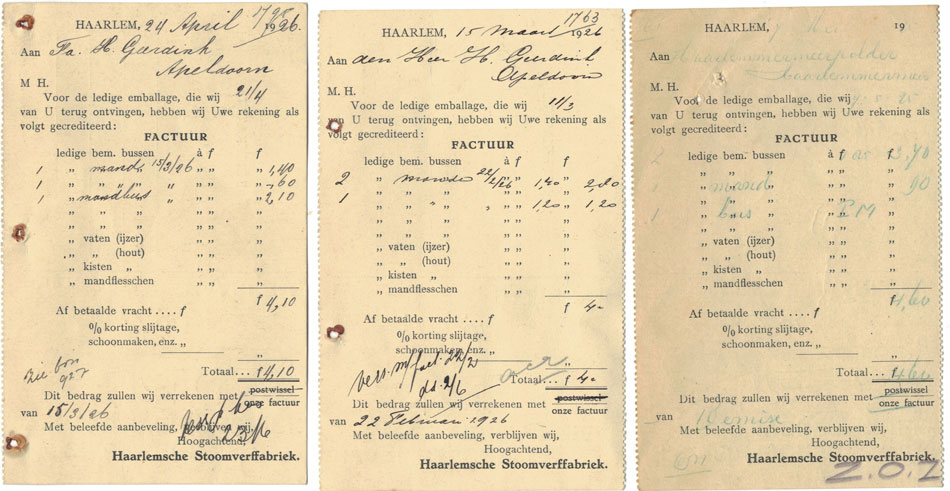 1798
HAARLEM, 24 April 1926.
Aan Fa. H. Geerdink
Apeldoorn
M H.
Voor de ledige emballage, die wij 21/4
van U terug ontvingen, hebben wij Uwe rekening als
volgt gecrediteerd:
FACTUUR
ledige bem. bussen à f f
1 „ mand 15/3/26 „ „ „ 1,40
1 „ „ „ „ „ „ -60
1 „ mandbus „ „ „ 2,10
„ „ „ „ „ „
„ „ „ „ „ „
„ vaten (ijzer) „ „ „
„ „ (hout) „ „ „
„ kisten „ „ „ „
„ mandflesschen „ „ „
f 4,10
Af betaalde vracht .... f
% korting slijtage,
schoonmaken, enz. „ „
Zie bon
927
Totaal... f 4,10
Dit bedrag zullen wij verrekenen met postwissel
onze factuur
van 15/3/26
Met beleefde aanbeveling, verblijven wij,
Hoogachtend,
Haarlemsche Stoomverffabriek.
1763
HAARLEM, 15 Maart 1926
Aan den Heer H. Geerdink
Apeldoorn
M. H.
Voor de ledige emballage, die wij 11/3
van U terug ontvingen, hebben wij Uwe rekening als
volgt gecrediteerd:
FACTUUR
ledige bem. bussen à f f
2 „ mande 22/2/26 1,40 2,80
1 „ „ „ „ 1,20 „ 1,20
„ „ „ „ „ „
„ „ „ „ „ „
„ vaten (ijzer) „ „ „
„ „ (hout) „ „ „
„ kisten „ „ „ „
„ mandflesschen „ „ „
f 4-
Af betaalde vracht .... f
% korting slijtage,
schoonmaken, enz. „ „
verr. m/ fact. 22/2
dd. 2/6
Totaal... f 4-
Dit bedrag zullen wij verrekenen met postwissel
onze factuur
van 22 Februari 1926
Met beleefde aanbeveling, verblijven wij,
Hoogachtend,
Haarlemsche Stoomverffabriek.
HAARLEM, 19
Aan Haarlemmermeerpolder
M. H.
Voor de ledige emballage, die wij
van U terug ontvingen, hebben wij Uwe rekening als
volgt gecrediteerd:
FACTUUR
ledige bem. bussen à f f
2 „ „ „ „ 3,70
1 „ mand „ „ „ 90
1 „ bus „ „ „
„ „ „ „ „ „
„ „ „ „ „ „
„ vaten (ijzer) „ „ „
„ „ (hout) „ „ „
„ kisten „ „ „ „
„ mandflesschen „ „ „
f 4,60
Af betaalde vracht .... f
% korting slijtage,
schoonmaken, enz. „ „
Totaal... f 4,60
Dit bedrag zullen wij verrekenen met postwissel
onze factuur
van Remise
Met beleefde aanbeveling, verblijven wij,
Hoogachtend,
Haarlemsche Stoomverffabriek.
Z.O.Z